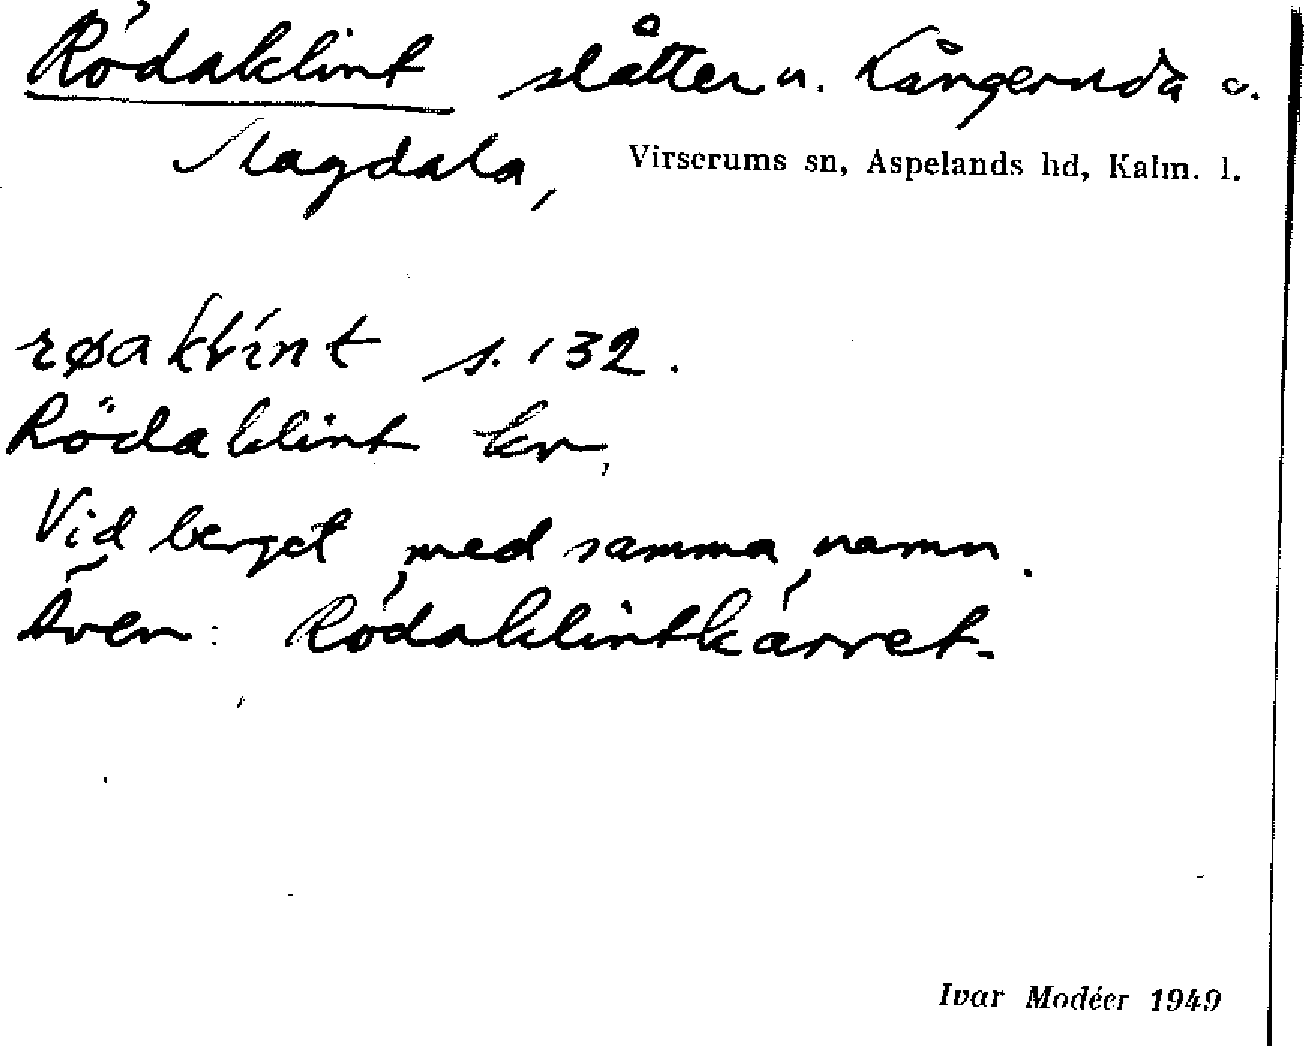 Rödaklint slåtter u. Långeruda o.
Magdala, Virserums sn, Aspelands hd, Kalm. l.
røaklint s. 132.
Rödaklint kv,
Vid berget med samma namn.
Även: Rödaklintkärret.
Ivar Modéer 1949